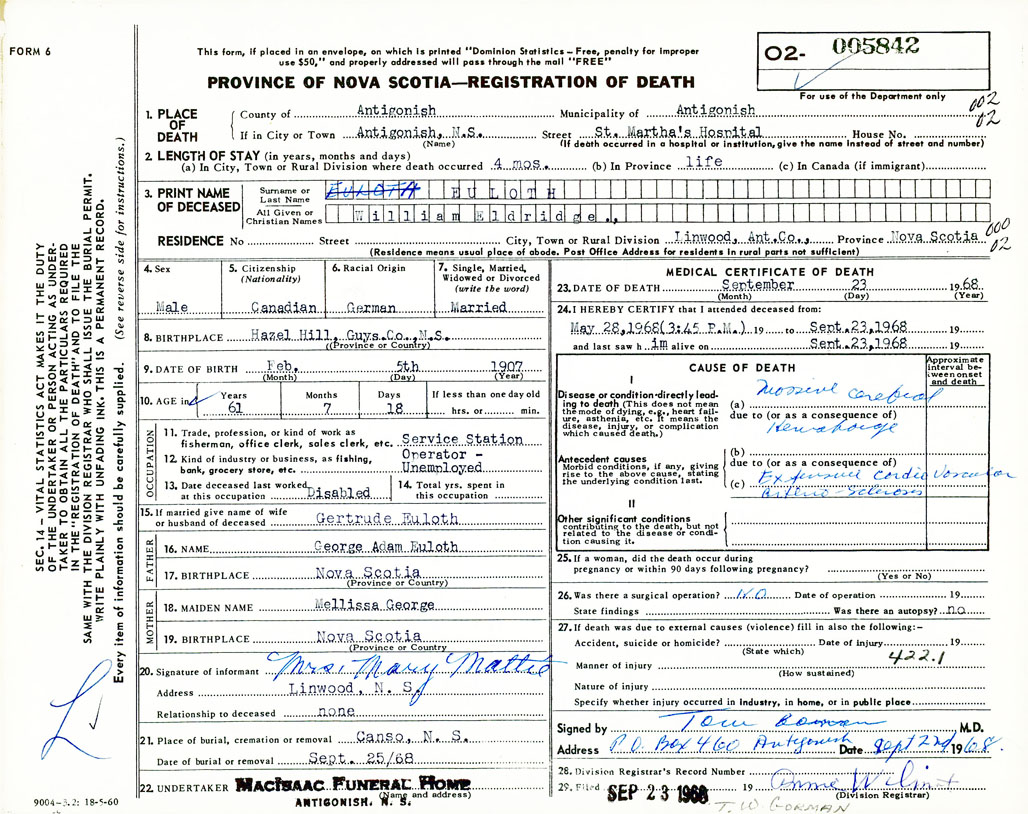 FORM 6
This form, if placed in an envelope, on which is printed "Dominion Statistics – Free, penalty for improper
use $50," and properly addressed will pass through the mail "FREE"
PROVINCE OF NOVA SCOTIA—REGISTRATION OF DEATH
O2- 005842
For use of the Department only
002
02
1. PLACE OF DEATH
County of Antigonish Municipality of Antigonish
If in City or Town Antigonish, N.S. Street St. Martha's Hospital House No.
(Name) (If death occurred in a hospital or institution, give the name instead of street and number)
2. LENGTH OF STAY (in years, months and days)
(a) In City, Town or Rural Division where death occurred 4 mos. (b) In Province life (c) In Canada (if immigrant)
3. PRINT NAME OF DECEASED
Surname or Last Name EULOTH
All Given or Christian Names William Eldridge.,
000
02
RESIDENCE No Street City, Town or Rural Division Linwood, Ant.Co., Province Nova Scotia
(Residence means usual place of abode. Post Office Address for residents in rural parts not sufficient)
4. Sex
Male
5. Citizenship
(Nationality)
Canadian
6. Racial Origin
German
7. Single, Married, Widowed or Divorced
(write the word)
Married
8. BIRTHPLACE Hazel Hill, Guys.Co., N.S.
(Province or Country)
9. DATE OF BIRTH Feb. 5th 1907
(Month) (Day) (Year)
10. AGE in Years Months Days If less than one day old
61 7 18 hrs. or min.
OCCUPATION
11. Trade, profession, or kind of work as
fisherman, office clerk, sales clerk, etc. Service Station
12. Kind of industry or business, as fishing, Operator -
bank, grocery store, etc. Unemployed
13. Date deceased last worked at this occupation Disabled
14. Total yrs. spent in this occupation
15. If married give name of wife
or husband of deceased Gertrude Euloth
FATHER
16. NAME George Adam Euloth
17. BIRTHPLACE Nova Scotia
(Province or Country)
MOTHER
18. MAIDEN NAME Mellissa George
19. BIRTHPLACE Nova Scotia
(Province or Country
20. Signature of informant Mrs. Mary Mattie
Address Linwood, N. S.
Relationship to deceased none
21. Place of burial, cremation or removal Canso, N. S.
Date of burial or removal Sept. 25/68
22. UNDERTAKER MacIsaac Funeral Home
(Name and address)
ANTIGONISH. N. S.
MEDICAL CERTIFICATE OF DEATH
23. DATE OF DEATH September 23 1968
(Month) (Day) (Year)
24. I HEREBY CERTIFY that I attended deceased from:
May 28,1968(3:45 P.M.) 19 to Sept.23,1968 19
and last saw h im alive on Sept.23,1968 19
CAUSE OF DEATH
Approximate interval between onset and death
I
Disease or condition directly leading to death (This does not mean
the mode of dying, e.g., heart failure, asthenia, etc. It means the
disease, injury, or complication
which caused death.)
(a) Massive Cerebral
due to (or as a consequence of)
Hemorrhage
Antecedent causes
Morbid conditions, if any, giving
rise to the above cause, stating
the underlying condition last.
(b)
due to (or as a consequence of)
(c) Extensive Cardio Vascular
Arterio-sclerosis
II
Other significant conditions
contributing to the death, but not
related to the disease or condition causing it.
25. If a woman, did the death occur during
pregnancy or within 90 days following pregnancy?
(Yes or No)
26. Was there a surgical operation? NO Date of operation 19
State findings Was there an autopsy? no
27. If death was due to external causes (violence) fill in also the following:–
Accident, suicide or homicide? Date of injury 19
(State which)
422.1
Manner of injury
(How sustained)
Nature of injury
Specify whether injury occurred in industry, in home, or in public place
Signed by Tom Gorman M.D.
Address P.O. Box 460 Antigonish Date Sept 23rd 1968.
28. Division Registrar's Record Number
29. Filed SEP 23 1968 19
(Division Registrar)
T. W. GORMAN
SEC. 14 – VITAL STATISTICS ACT MAKES IT THE DUTY
OF THE UNDERTAKER OR PERSON ACTING AS UNDER-
TAKER TO OBTAIN ALL THE PARTICULARS REQUIRED
IN THE "REGISTRATION OF DEATH" AND TO FILE THE
SAME WITH THE DIVISION REGISTRAR WHO SHALL ISSUE THE BURIAL PERMIT.
WRITE PLAINLY WITH UNFADING INK. THIS IS A PERMANENT RECORD.
Every item of information should be carefully supplied. (See reverse side for instructions.)
9004-3.2: 18-5-60